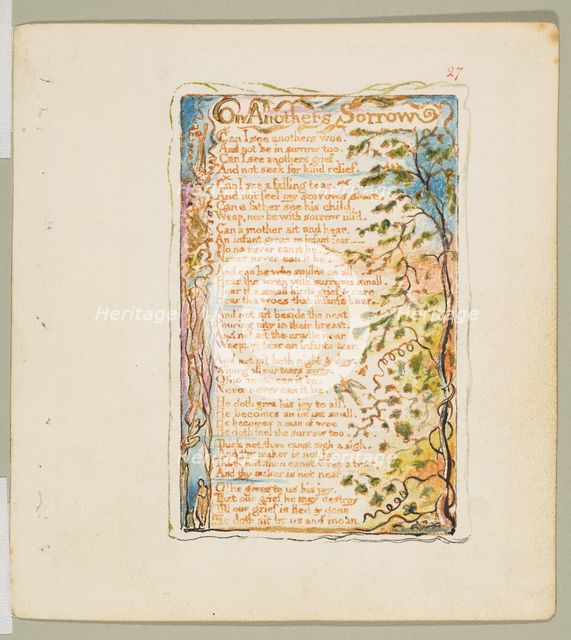 27
On Anothers Sorrow
Can I see anothers woe,
And not be in sorrow too.
Can I see anothers grief,
And not seek for kind relief.
Can I see a falling tear,
And not feel my sorrows share,
Can a father see his child,
Weep, nor be with sorrow fill'd.
Can a mother sit and hear,
An infant groan an infant fear
No no never can it be,
Never never can it be.
And can he who smiles on all
Hear the wren with sorrows small,
Hear the small birds grief & care
Hear the woes that infants bear
And not sit beside the nest
Pouring pity in their breast,
And not sit the cradle near
Weeping tear on infants tear.
And not sit both night & day,
Wiping all our tears away.
O! no never can it be.
Never never can it be.
He doth give his joy to all,
He becomes an infant small.
He becomes a man of woe
He doth feel the sorrow too.
Think not, thou canst sigh a sigh,
And thy maker is not by
Think not, thou canst weep a tear,
And thy maker is not near.
O! he gives to us his joy,
That our grief he may destroy
Till our grief is fled & gone
He doth sit by us and moan
Heritage
Heritage
Heritage
Heritage
Heritage
Heritage